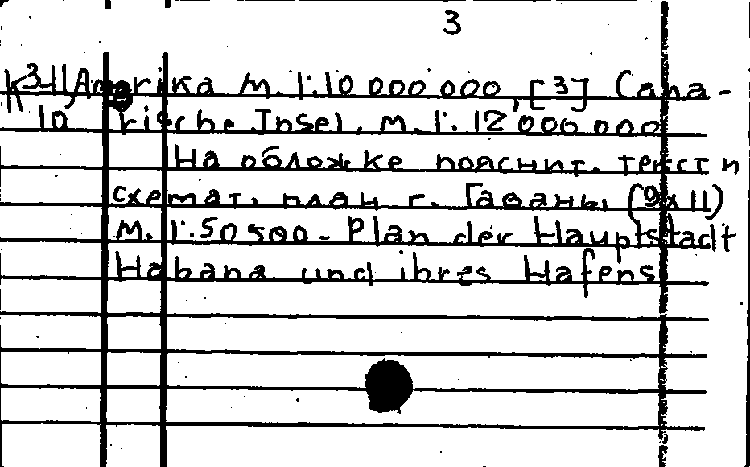 3
К 3-11/10 Amerika M. 1:10 000 000, [3] Cana-
rische Insel. M. 1:12 000 000
На обложке пояснит. текст и
схемат. план г. Гаваны (9х11)
M. 1:50 500 - Plan der Hauptstadt
Habana und ihres Hafens